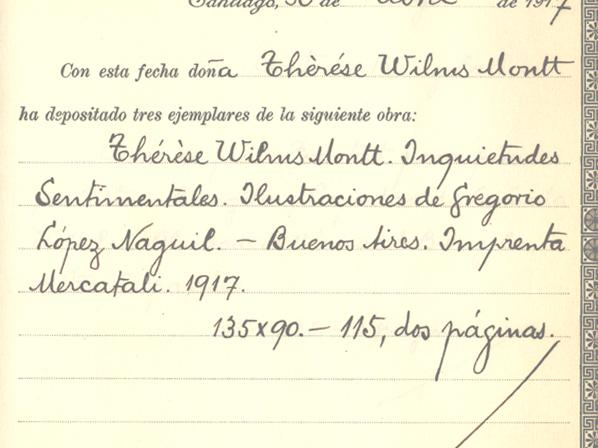 Santiago, 30 de Abril de 1917
Con esta fecha doña Thèrése Wilms Montt
ha depositado tres ejemplares de la siguiente obra:
Thérèse Wilms Montt. Inquietudes
Sentimentales. Ilustraciones de Gregorio
López Naguil. — Buenos Aires. Imprenta
Mercatali. 1917.
135x90.— 115, dos páginas.